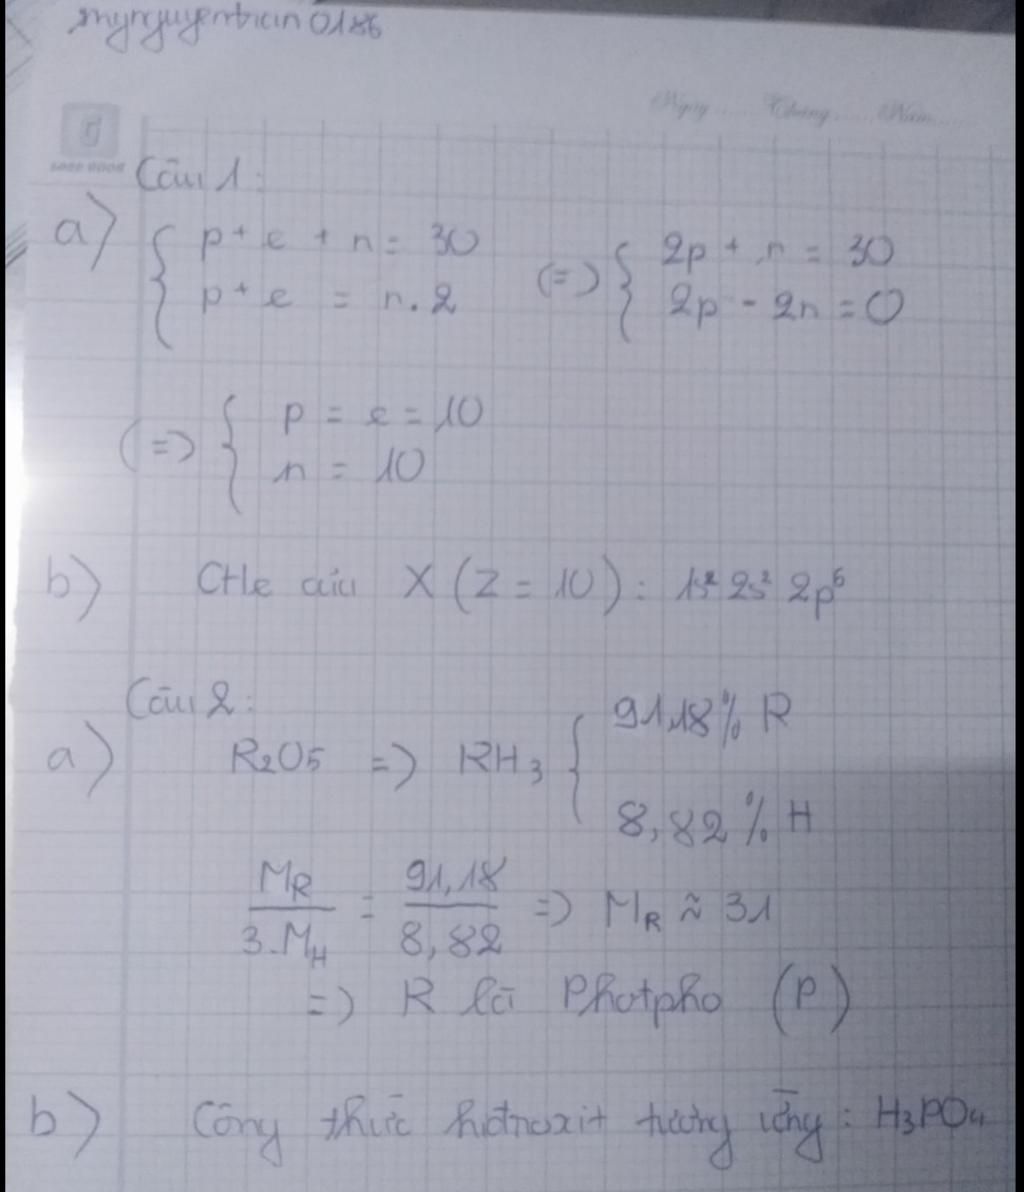 mynguyentran0186
Ngày ...... Tháng ...... Năm ......
GOOD BOOK
Câu 1:
a) { p + e + n = 30 (=) { 2p + n = 30
p + e = n.2 2p - 2n = 0
(=) { p = e = 10
n = 10
b) CHe của X (Z = 10): 1s² 2s² 2p⁶
Câu 2:
a) R₂O₅ => RH₃ { 91,18% R
8,82% H
M_R / 3.M_H = 91,18 / 8,82 => M_R ≈ 31
=> R là Photpho (P)
b) Công thức hiđroxit tương ứng: H₃PO₄